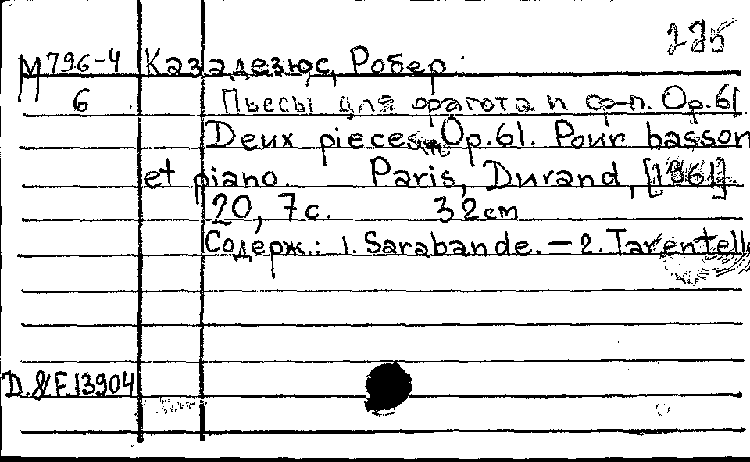 185
М796-4 Казадезюс, Робер.
6 Пьесы для фагота и ф-п. Op.61
Deux pieces. Op.61. Pour basson
et piano. Paris, Durand, [1961]
20, 7с. 32cm
Содерж.: 1. Sarabande. — 2. Tarentell
D.&F.13904